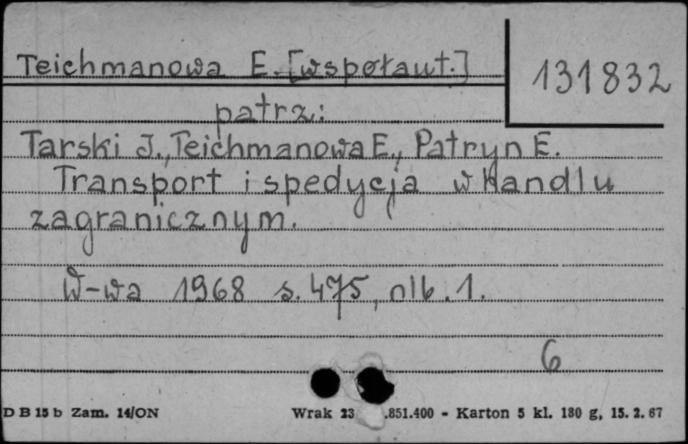 Teichmanowa E. [wspołaut.]
131832
patrz:
Tarski J., Teichmanowa E., Patryn E.
Transport i spedycja w handlu
zagranicznym.
W-wa 1968 s. 475, nlb. 1.
6
D B 15 b Zam. 14/ON
Wrak 23 .851.400 - Karton 5 kl. 180 g, 15. 2. 67